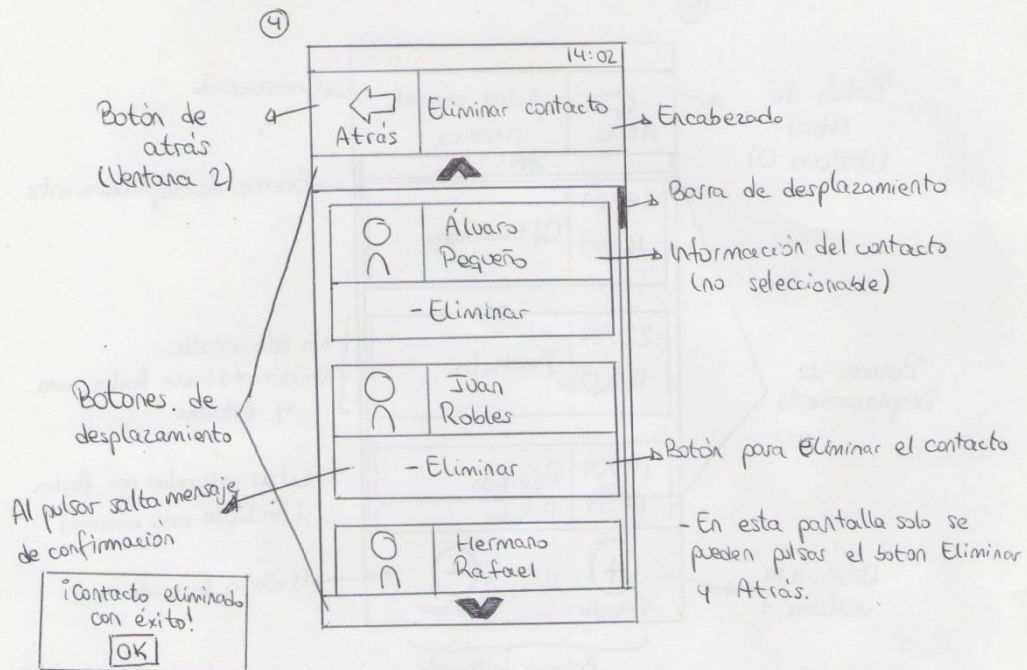 4
14:02
Eliminar contacto
Atrás
Botón de
atrás
(Ventana 2)
Encabezado
Barra de desplazamiento
Álvaro
Pequeño
Información del contacto
(no seleccionable)
- Eliminar
Juan
Robles
Botones de
desplazamiento
- Eliminar
Botón para Eliminar el contacto
Al pulsar salta mensaje
de confirmación
Hermano
Rafael
- En esta pantalla solo se
pueden pulsar el boton Eliminar
y Atras.
¡Contacto eliminado
con éxito!
OK